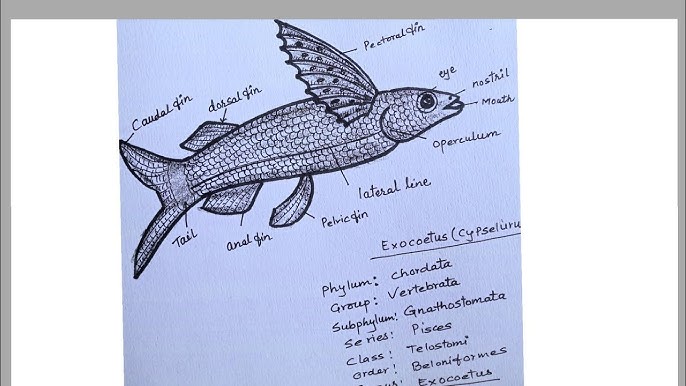 Pectoral fin
eye
nostril
Mouth
Caudal fin
dorsal fin
Operculum
lateral line
Pelvic fin
anal fin
Tail
Exocoetus (Cypseluru
Phylum: Chordata
Group: Vertebrata
Subphylum: Gnathostomata
Series: Pisces
Class: Telostomi
Order: Beloniformes
Exocoetus